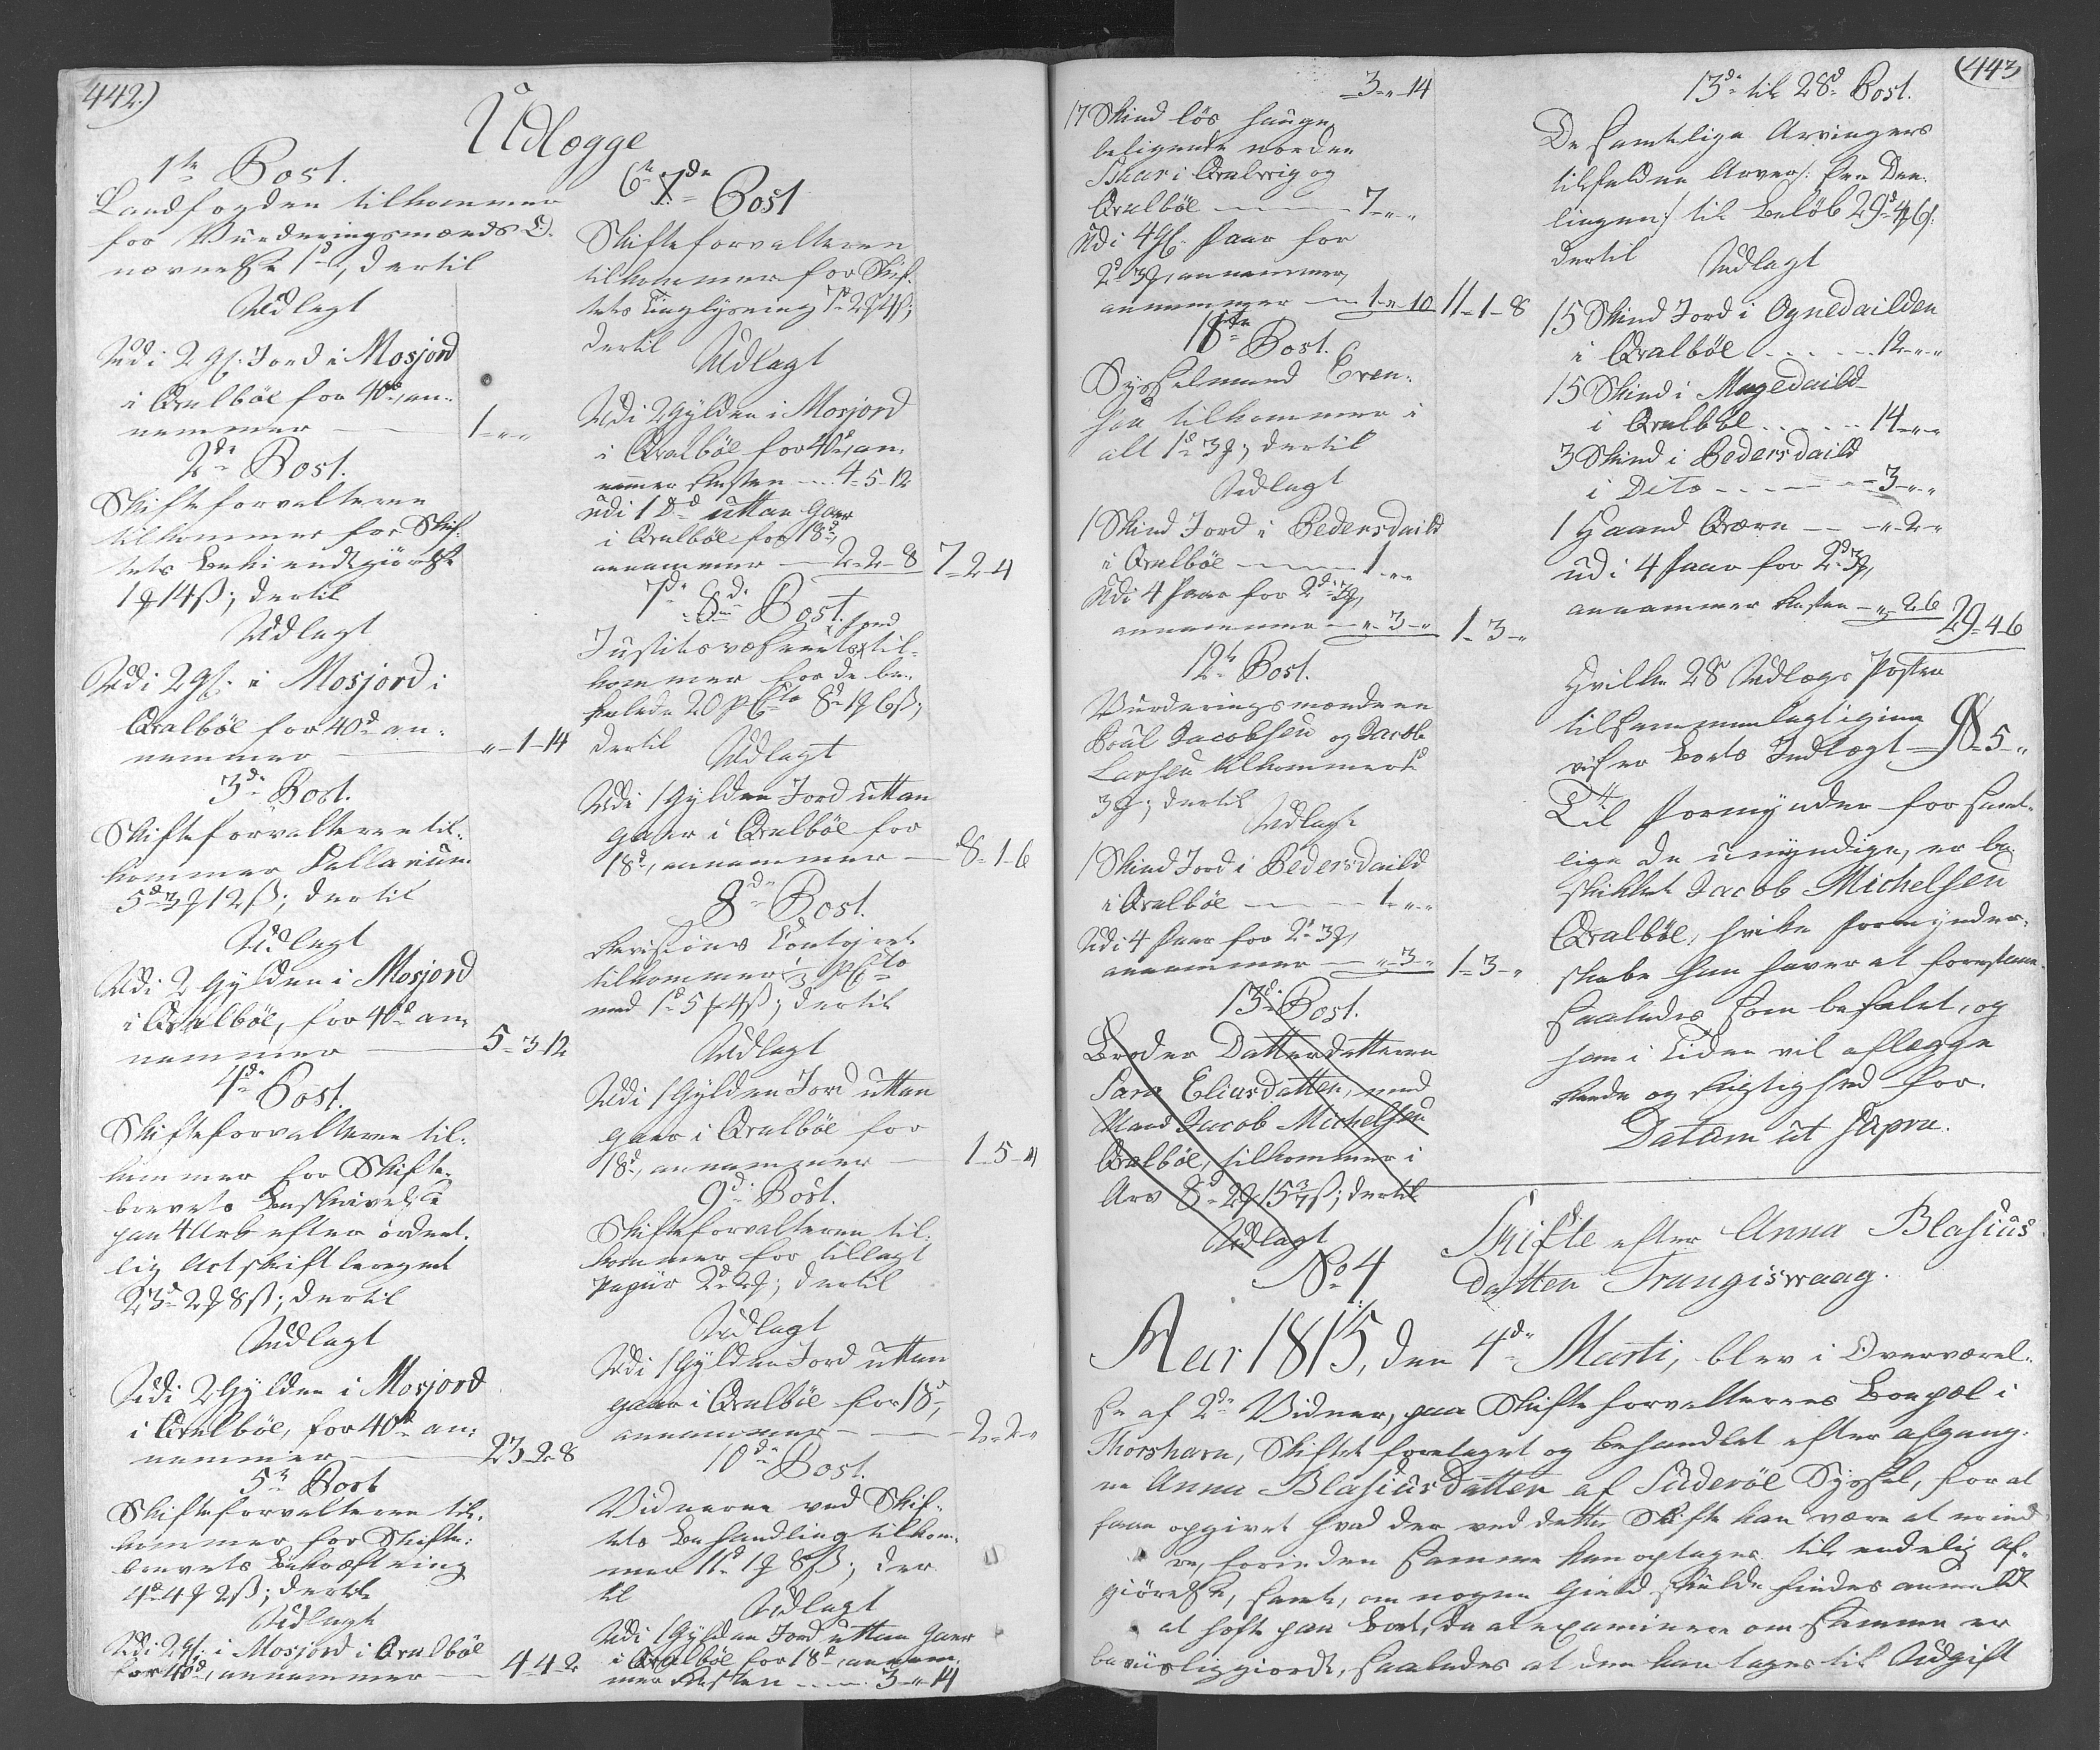 442.)
Udlogge
1te Post.
Landfogden tilkommer
for Vurderingsmænds U-
nævnelse 1d, dertil
Udlagt
Udi 2 Gl. Jord i Mosjord
i Qvalbøe for 40d, an-
nammer — 1 „ „
2de Post.
Skifteforvalteren
tilkommer for Skif-
tets Bekiendtgiørelse
1 ʒ 14 ß; dertil
Udlagt
Udi 2 Gl. i Mosjord i
Qvalbøe for 40d an-
nammer — „ 1 14
3de Post.
Skifteforvalteren til-
kommer Sallarium
5d 3 ʒ 12 ß; dertil
Udlagt
Udi 2 Gylden i Mosjord
i Qvalbøe, for 40d an-
nammer — 5 3 12
4de Post.
Skifteforvalteren til-
kommer for Skifte-
brevets Beskrivelse
paa 4 Ark efter ordent-
lig Actskift beregnet
23d 2 ʒ 8 ß; dertil
Udlagt
Udi 2 Gylden i Mosjord
i Qvalbøe, for 40d an-
nammer — 23 2 8
5te Post
Skifteforvalteren til-
kommer for Skifte-
brevets Bekræftning
4d 4 ʒ 2 ß; dertil
Udlagt
Udi 2 Gl. i Mosjord i Qvalbøe
for 40d, annammer — 4 4 2
6te 7de Post
Skifteforvalteren
tilkommer for Skif-
tets Tinglysning 7d 2 ʒ 4 ß;
dertil
Udlagt
Udi 2 Gylden i Mosjord
i Qvalbøe for 40d, an-
nammer Resten .... 4 5 12
udi 1 Do uttan Gaar
i Qvalbøe for 18d,
annammer — 2 2 8 7 2 4
7de 8de Post.
Justitsvæsenets Fond til-
kommer for de be-
falede 20 pCto 8d 1 ʒ 6 ß;
dertil
Udlagt
Udi 1 Gylden Jord uttan
gaar i Qvalbøe for
18d, annammer — 8 1 6
8de Post.
Revisions Contoiret
tilkommer pCto
med 1d 5 ʒ 4 ß; dertil
Udlagt
Udi 1 Gylden Jord uttan
gaar i Qvalbøe for
18d, annammer — 1 5 4
9de Post.
Skifteforvalteren til-
kommer for tillagt
Papiir 2d 2 ʒ; dertil
Udlagt
Udi 1 Gylden Jord uttan
gaar i Qvalbøe for 18d,
annammer — 2 2 „
10de Post.
Vidnerne ved Skif-
tets Behandling tilkom-
mer 11d 1 ʒ 8 ß; der-
til
Udlagt
Udi 1 Gylden Jord uttan Gaar
i Qvalbøe for 18d, annam-
mer Resten .... 3 „ 14
(443
3 „ 14
7 Skind løs hauge
beligende norden
Skar i Qvalvig og
Qvalbøe — 7 „ „
Udi 4 Gl. Faar for
2d 3 ʒ, annammer,
annammer — 1 „ 10 11 1 8
11te Post.
Sysselmand Even-
sen tilkommer i
alt 1d 3 ʒ; dertil
Udlagt
1 Skind Jord i Bedersdaild
i Qvalbøe — 1 „ „
Udi 4 Faar for 2d 3 ʒ,
annammer — „ 3 „ 1 3 „
12te Post.
Vurderingsmændene
Poul Jacobsen og Jacob
Larsen tilkommer 1d
3 ʒ; dertil
Udlagt
1 Skind Jord i Bedersdaild
i Qvalbøe — 1 „ „
Udi 4 Faar for 2d 3 ʒ,
annammer — „ 3 „ 1 3 „
13de Post.
Broder Datterdatteren
Sara Eliasdatter, med
Mand Jacob Michelsen
Qvalbøe, tilkommer i
Arv 8d 2 ʒ 15 3/7 ß; dertil
Udlagt
13de til 28de Post.
De samtlige Arvingers
tilfaldne Arver /: See Dee-
lingen :/ til Beløb 29d 4 ʒ 6 ß
dertil Udlagt
15 Skind Jord i Ognedailden
i Qvalbøe . . . . . 12 „ „
15 Skind i Magedaild
i Qvalbøe . . . . . 14 „ „
3 Skind i Bedersdaild
i Dito . . . . 3 „ „
1 Haand Qværn — „ 2 „
udi 4 Faar for 2d 3 ʒ,
annammer Resten — „ 2 6 29 4 6
Hvilke 28 Udlægs Poster
tilsammenlagt igien-
viser Boets Indtægt — 98 5 „
Til Formynder for samt-
lige de umyndige, er be-
skikket Jacob Michelsen
Qvalbøe, hvilke Formynder-
skabe han haver at forestaae
saaledes som befalet, og
han i Tiden vil aflægge
Rede og Rigtighed for.
Datum ut supra.
No 4
Skifte efter Anna Blasius
datter Trangiswaag.
Aar 1815, den 4de Marti, blev i Overværel-
se af 2de Vidner, paa Skifteforvalterens Boepæl i
Thorshavn, Skiftet foretaget og behandlet efter afgang-
ne Anna Blasius Datter af Süderøe Syssel, for at
faae opgivet hvad der ved dette Skifte kan være at erind
re, forinden samme kan optages til endelig Af-
giørelse, samt, om nogen Gield skulde findes anmeldt
at hefte paa Boet, da at examinere om samme er
beviisliggiordt, saaledes at den kan tages til Udgift